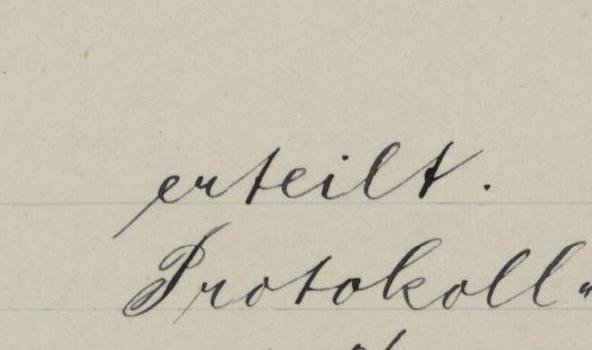 erteilt.
Protokoll"